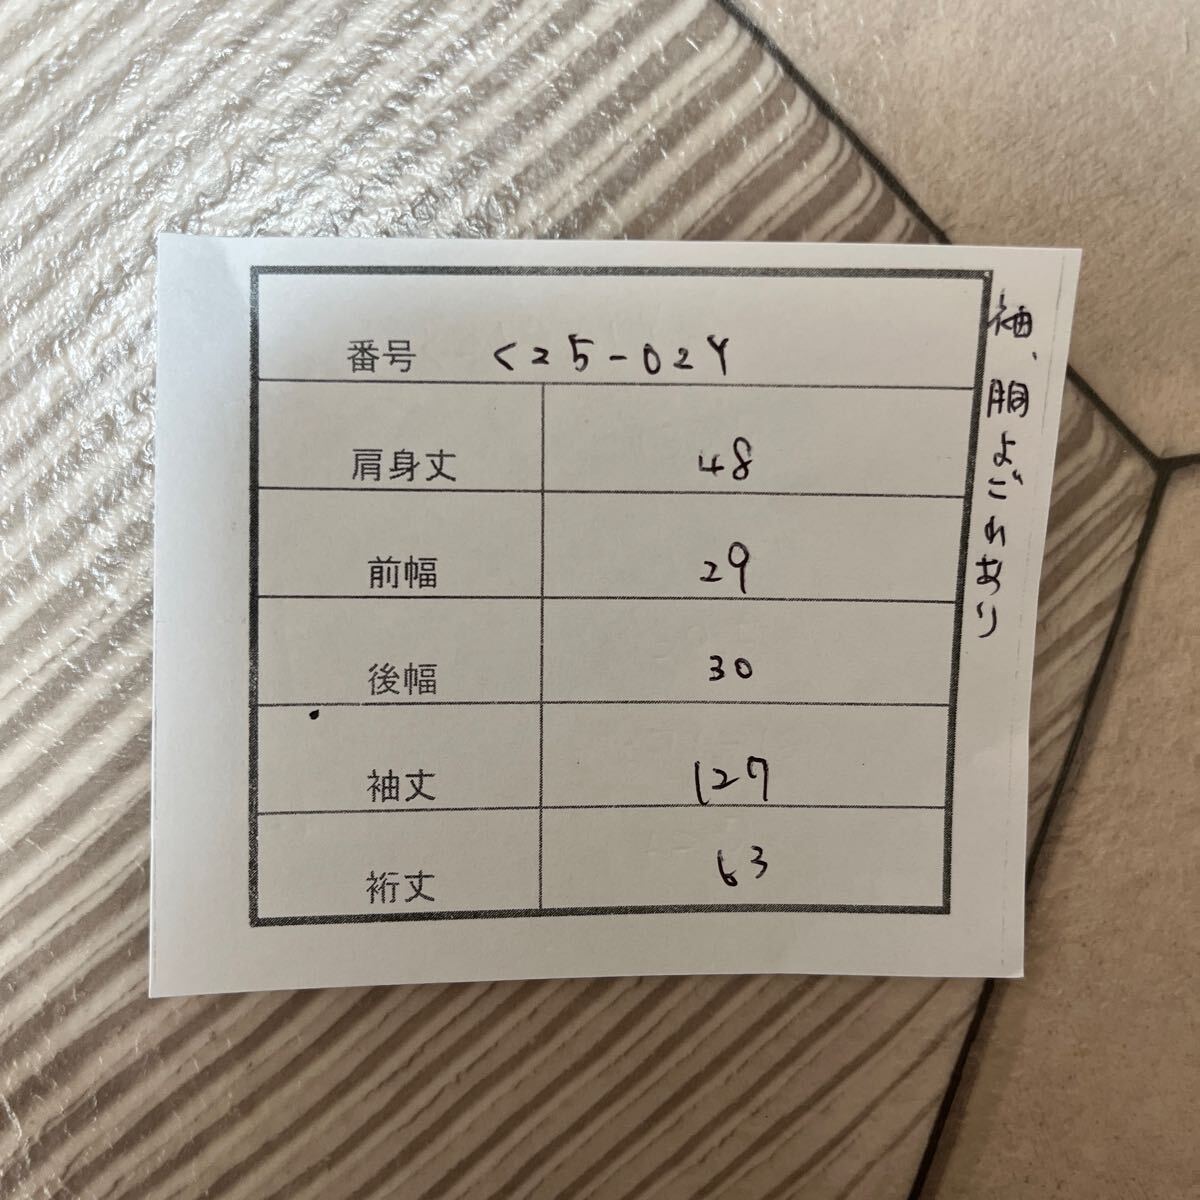 番号 C25-024
肩身丈 48
前幅 29
後幅 30
袖丈 127
裄丈 63
袖、胴よごれあり